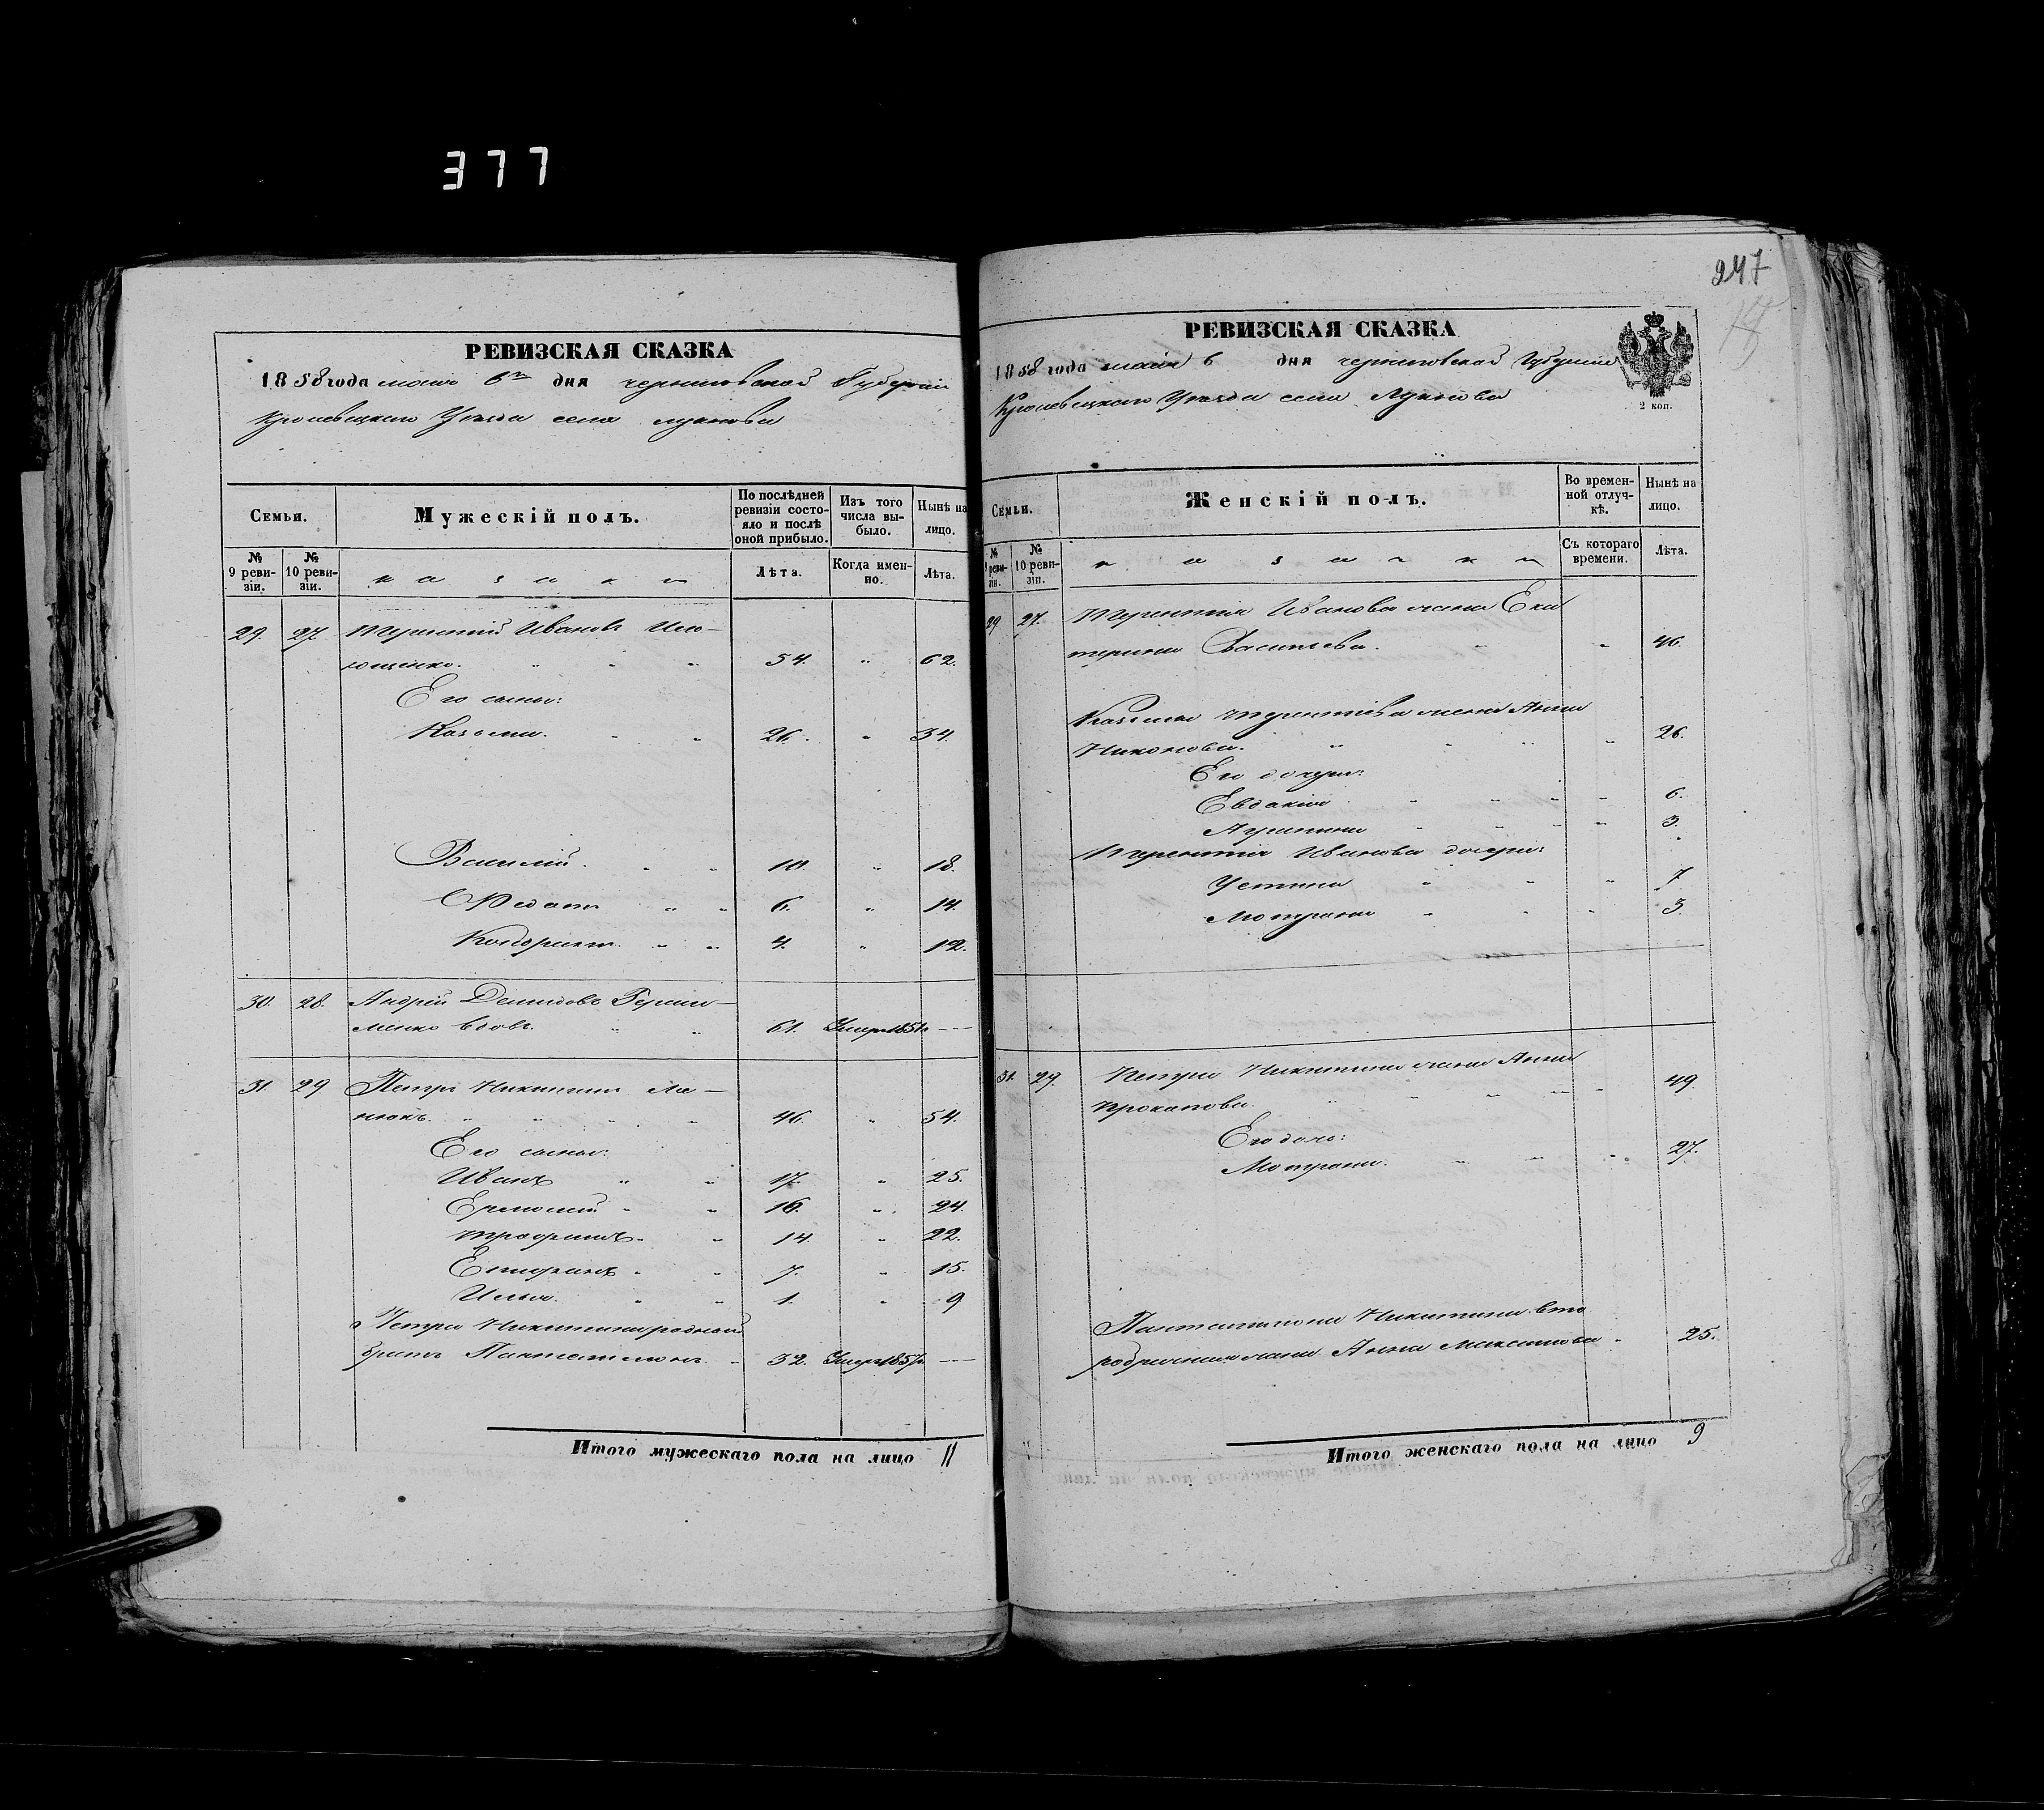 377
247
РЕВИЗСКАЯ СКАЗКА
1858 года мая 6го дня черниговской Губерніи
Кролевецкаго Уезда села лукнова
Семьи.
Мужескій полъ.
По послѣдней ревизіи состо-
яло и послѣ
оной прибыло.
Изъ того
числа вы-
было.
Нынѣ на
лицо.
№
9 реви-
зіи.
№
10 реви-
зіи.
казаки
Лѣта.
Когда имен-
но.
Лѣта.
29. 27. Терентій Ивановъ
ющенко. " " " 54. " 62.
Его сыны:
Козьма. " " 26. " 34.
Василій. " " 10. " 18.
Федотъ " " 6. " 14.
Кондратъ " " 4. " 12.
30. 28. Андрій Демидовъ Гераси-
менко вдовъ. " " 61. Умеръ 1851 ---
31. 29 Петръ Никитинъ
нюкъ. " " " " 46. " 54.
Его сыны:
Иванъ " " 17. " 25.
Ермолай " " 16. " 24.
Трофимъ " " 14. " 22.
Епифанъ " " 7. " 15.
Илья. " " 1. " 9
Петра Никитина родный
братъ Пантелимонъ. " 32. Умеръ 1857 ---
Итого мужескаго пола на лицо 11
РЕВИЗСКАЯ СКАЗКА
1858 года мая 6 дня черниговской Губерніи
Кролевецкаго Уезда села Лукнова
2 коп.
Семьи.
Женскій полъ.
Во времен-
ной отлуч-
кѣ.
Нынѣ на
лицо.
№
9 реви-
зіи.
№
10 реви-
зіи.
казачки
Съ котораго
времени.
Лѣта.
29 27. Терентія Иванова жена Ека
терина Васильева. " " 46.
Козьмы Терентіева жена Анна
Никонова. " " " " 26.
Его дочери:
Евдокія " " " " 6.
Агрипина " " " " 3.
Терентія Иванова дочери:
Устина " " " 7
Мотрона " " " 3.
31. 29. Петра Никитина жена Анна
Прокопова. " " " " " 49.
Его дочь:
Мотрона. " " " 27.
Пантелимона Никитина вто
робрачная жена Анна Максимова " 25.
Итого женскаго пола на лицо 9